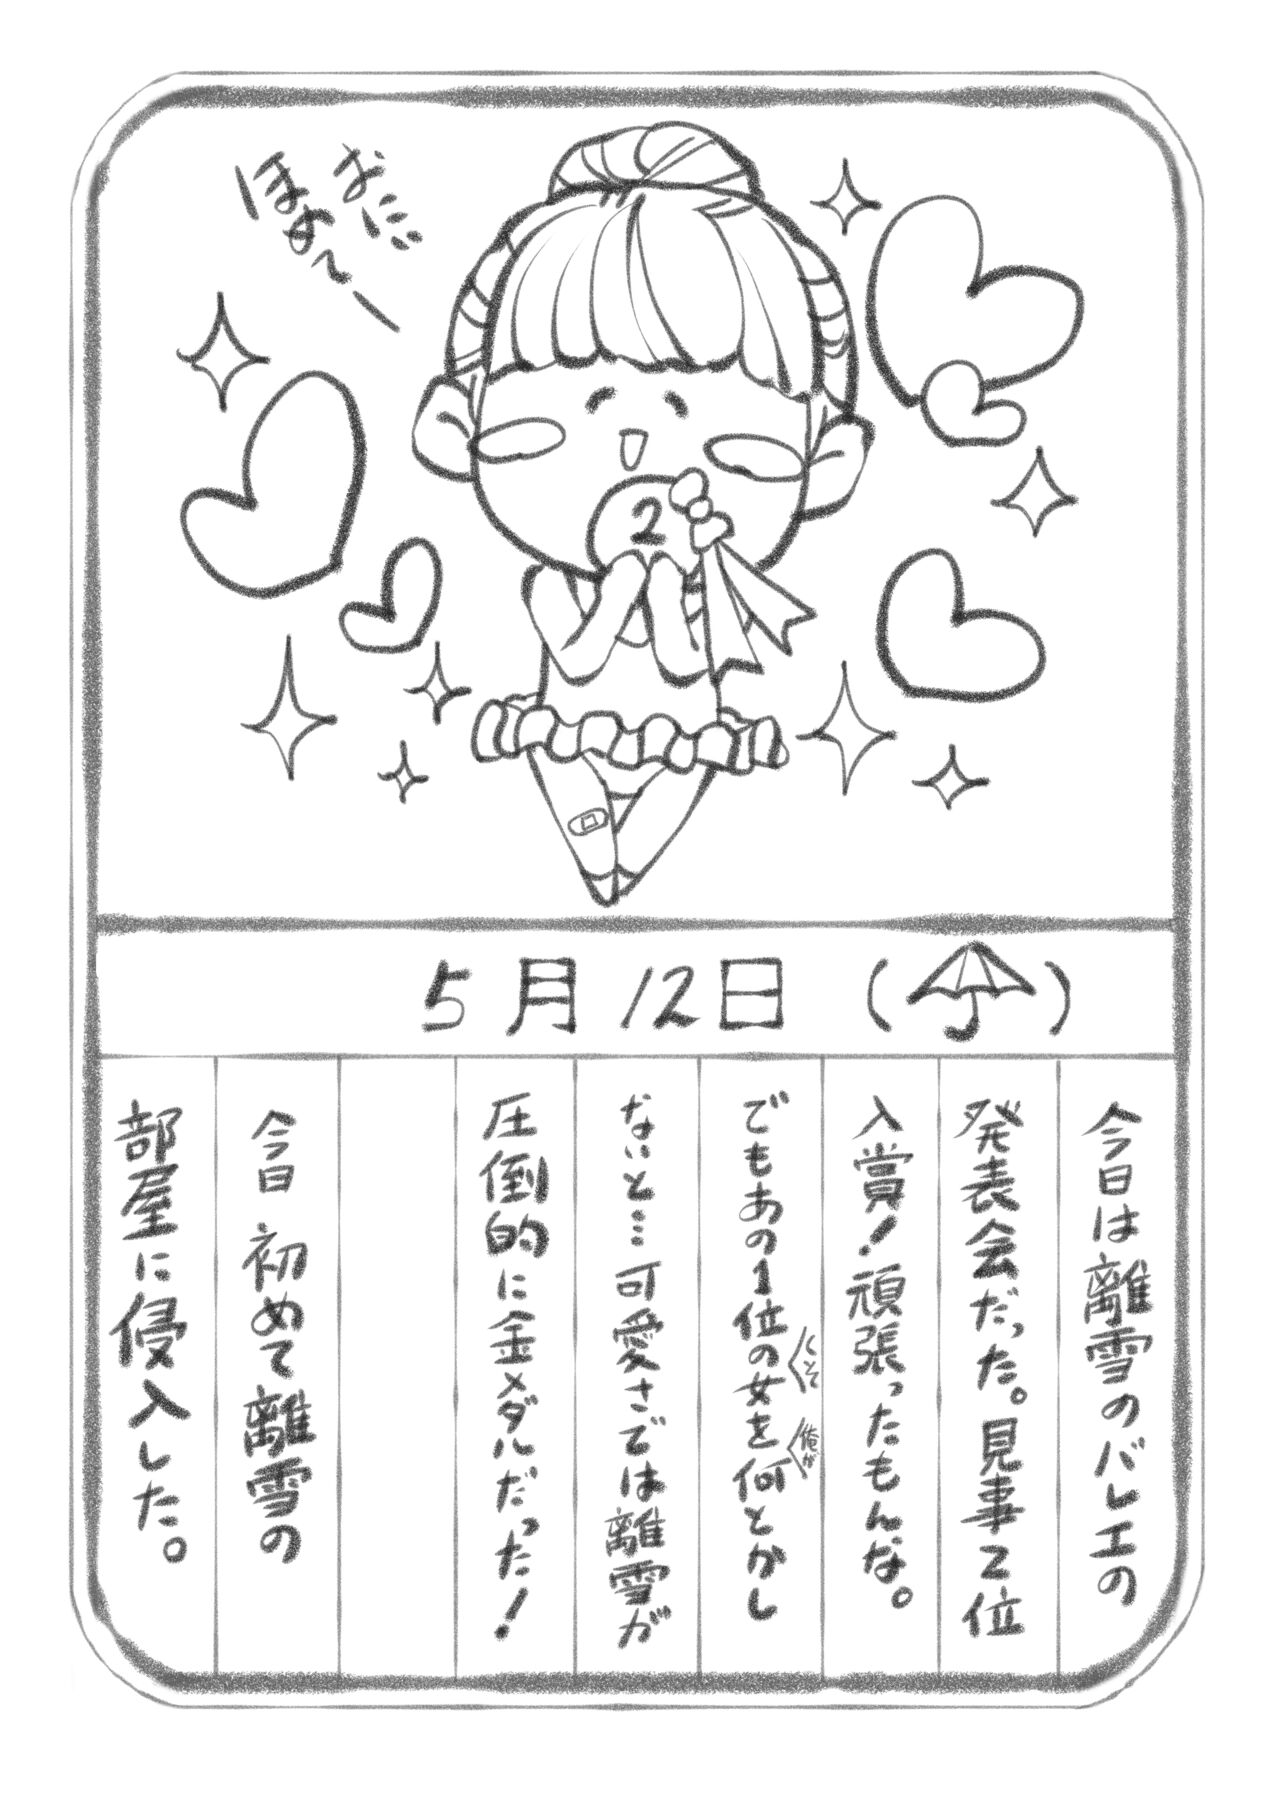 おに
ほめ～ー
2
5月12日（☂）
今日は離雪のバレエの
発表会だった。見事2位
入賞！頑張ったもんな。
でもあの1位の女を何とかし
＜くそて
＜俺が
ないと…可愛さでは離雪が
圧倒的に金メダルだった！
今日 初めて離雪の
部屋に侵入した。